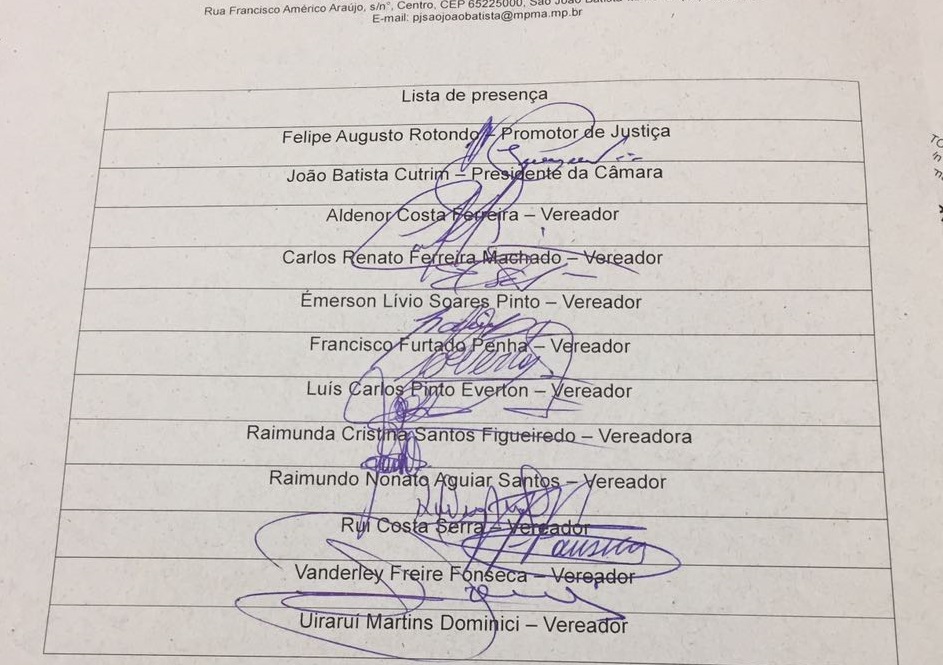 Rua Francisco Américo Araújo, s/n°, Centro, CEP 65225000, São João Batista
E-mail: pjsaojoaobatista@mpma.mp.br
Lista de presença
Felipe Augusto Rotondo – Promotor de Justiça
João Batista Cutrim – Presidente da Câmara
Aldenor Costa Ferreira – Vereador
Carlos Renato Ferreira Machado – Vereador
Émerson Lívio Soares Pinto – Vereador
Francisco Furtado Penha – Vereador
Luís Carlos Pinto Everton – Vereador
Raimunda Cristina Santos Figueiredo – Vereadora
Raimundo Nonato Aguiar Santos – Vereador
Rui Costa Serra – Vereador
Vanderley Freire Fonseca – Vereador
Uiraruí Martins Dominici – Vereador